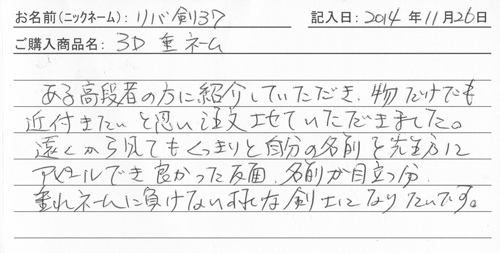 お名前(ニックネーム): リバ剣37 記入日: 2014年11月26日
ご購入商品名: 3D 垂ネーム
ある高段者の方に紹介していただき、物だけでも
近付きたいと思い注文させていただきました。
遠くから見てもくっきりと自分の名前を先生方に
アピールでき良かった反面、名前が目立つ分、
垂れネームに負けない様な剣士になりたいです。